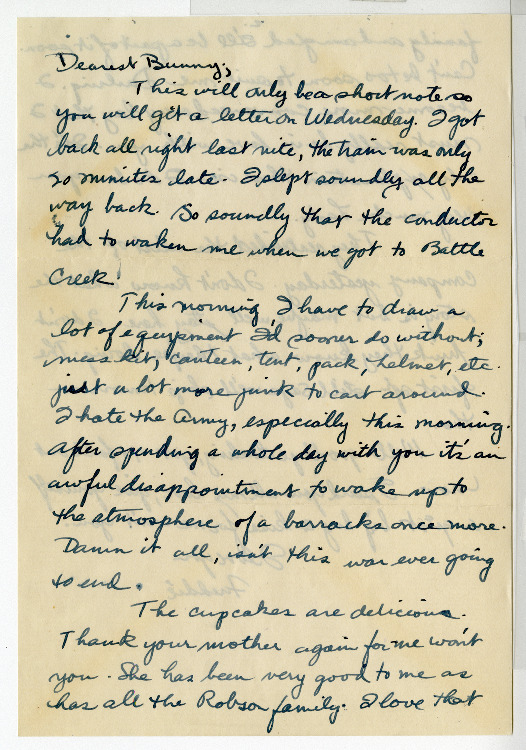 Dearest Bunny,
This will only be a short note so
you will get a letter on Wednesday. I got
back all right last nite, the train was only
20 minutes late. I slept soundly all the
way back. So soundly that the conductor
had to waken me when we got to Battle
Creek!
This morning I have to draw a
lot of equipment I'd sooner do without;
mess kit, canteen, tent, pack, helmet, etc.
just a lot more junk to cart around.
I hate the Army, especially this morning.
After spending a whole day with you it's an
awful disappointment to wake up to
the atmosphere of a barracks once more.
Damn it all, isn't this war ever going
to end.
The cupcakes are delicious.
Thank your mother again for me won't
you. She has been very good to me as
has all the Robson family. I love that